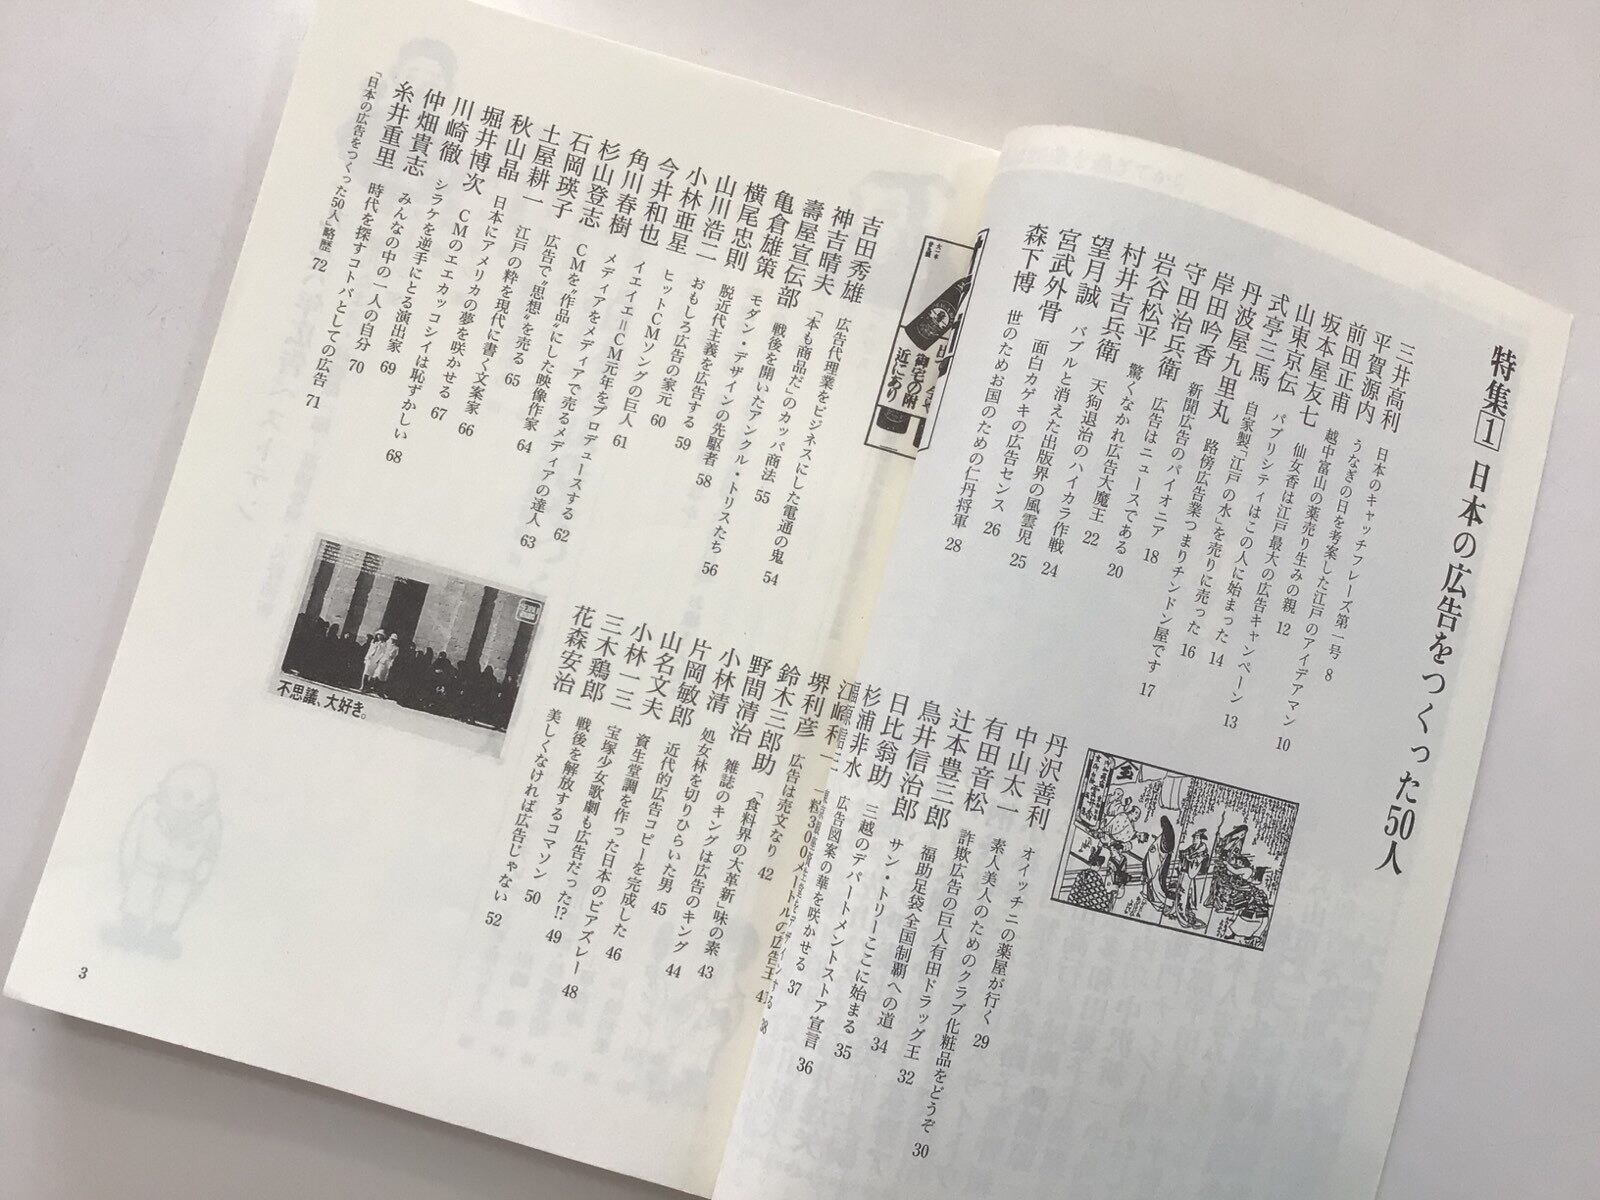 特集1 日本の広告をつくった50人
三井高利 日本のキャッチフレーズ第一号 8
平賀源内 うなぎの日を考案した江戸のアイデアマン 10
前田正甫 越中富山の薬売り生みの親 12
坂本屋友七 仙女香は江戸最大の広告キャンペーン 13
山東京伝 パブリシティはこの人に始まった 14
式亭三馬 自家製「江戸の水」を売りに売った 16
丹波屋九里丸 路傍広告業つまりチンドン屋です 17
岸田吟香 新聞広告のパイオニア 18
守田治兵衛 広告はニュースである 20
岩谷松平 驚くなかれ広告大魔王 22
村井吉兵衛 天狗退治のハイカラ作戦 24
望月誠 バブルと消えた出版界の風雲児 25
宮武外骨 面白カゲキの広告センス 26
森下博 世のためお国のための仁丹将軍 28
丹沢善利 オイッチニの薬屋が行く 29
中山太一 素人美人のためのクラブ化粧品をどうぞ 30
有田音松 詐欺広告の巨人有田ドラッグ王 32
辻本豊三郎 福助足袋全国制覇への道 34
鳥井信治郎 サン・トリーここに始まる 35
日比翁助 三越のデパートメントストア宣言 36
杉浦非水 広告図案の華を咲かせる 37
江崎利一 一粒300メートルの広告王 41
堺利彦 広告は売文なり 42
鈴木三郎助 「食料界の大革新」味の素 43
野間清治 雑誌のキングは広告のキング 44
小林清 処女林を切りひらいた男 45
片岡敏郎 近代的広告コピーを完成した 46
山名文夫 資生堂調を作った日本のビアズレー 48
小林一三 宝塚少女歌劇も広告だった!? 49
三木鶏郎 戦後を解放するコマソン 50
花森安治 美しくなければ広告じゃない 52
吉田秀雄 広告代理業をビジネスにした電通の鬼 54
神吉晴夫 「本も商品だ」のカッパ商法 55
壽屋宣伝部 戦後を開いたアンクル・トリスたち 56
亀倉雄策 モダン・デザインの先駆者 58
横尾忠則 脱近代主義を広告する 59
山川浩二 おもしろ広告の家元 60
小林亜星 ヒットCMソングの巨人 61
今井和也 イエイエ=CM元年をプロデュースする 62
角川春樹 メディアをメディアで売るメディアの達人 63
杉山登志 CMを“作品”にした映像作家 64
石岡瑛子 広告で“思想”を売る 65
土屋耕一 江戸の粋を現代に書く文案家 66
秋山晶 日本にアメリカの夢を咲かせる 67
堀井博次 CMのエエカッコシイは恥ずかしい 68
川崎徹 シラケを逆手にとる演出家 69
仲畑貴志 みんなの中の一人の自分 70
糸井重里 時代を探すコトバとしての広告 71
「日本の広告をつくった50人」略歴 72
御宅の附
近にあり
不思議、大好き。
3